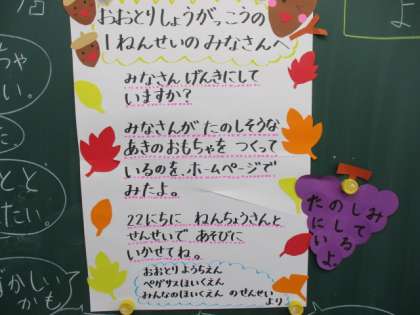 おおとりしょうがっこうの
1ねんせいのみなさんへ
みなさん げんきにして
いますか？
みなさんが たのしそうな
あきのおもちゃを つくって
いるのを、ホームページで
みたよ。
22にちに ねんちょうさんと
せんせいで あそびに
いかせてね。
おおとりようちえん
ペガサスほいくえん
みんなのほいくえん のせんせい
より
たのしみ
にして
いるよ
ちゃ
い。
とと
たい。
ずかしい
かも